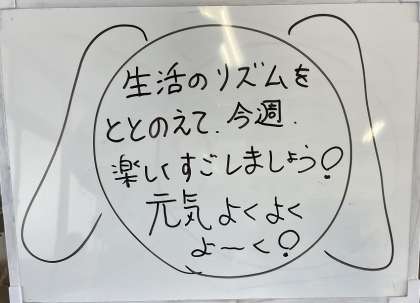 生活のリズムを
ととのえて、今週、
楽しくすごしましょう!
元気よくよく
よ〜く!